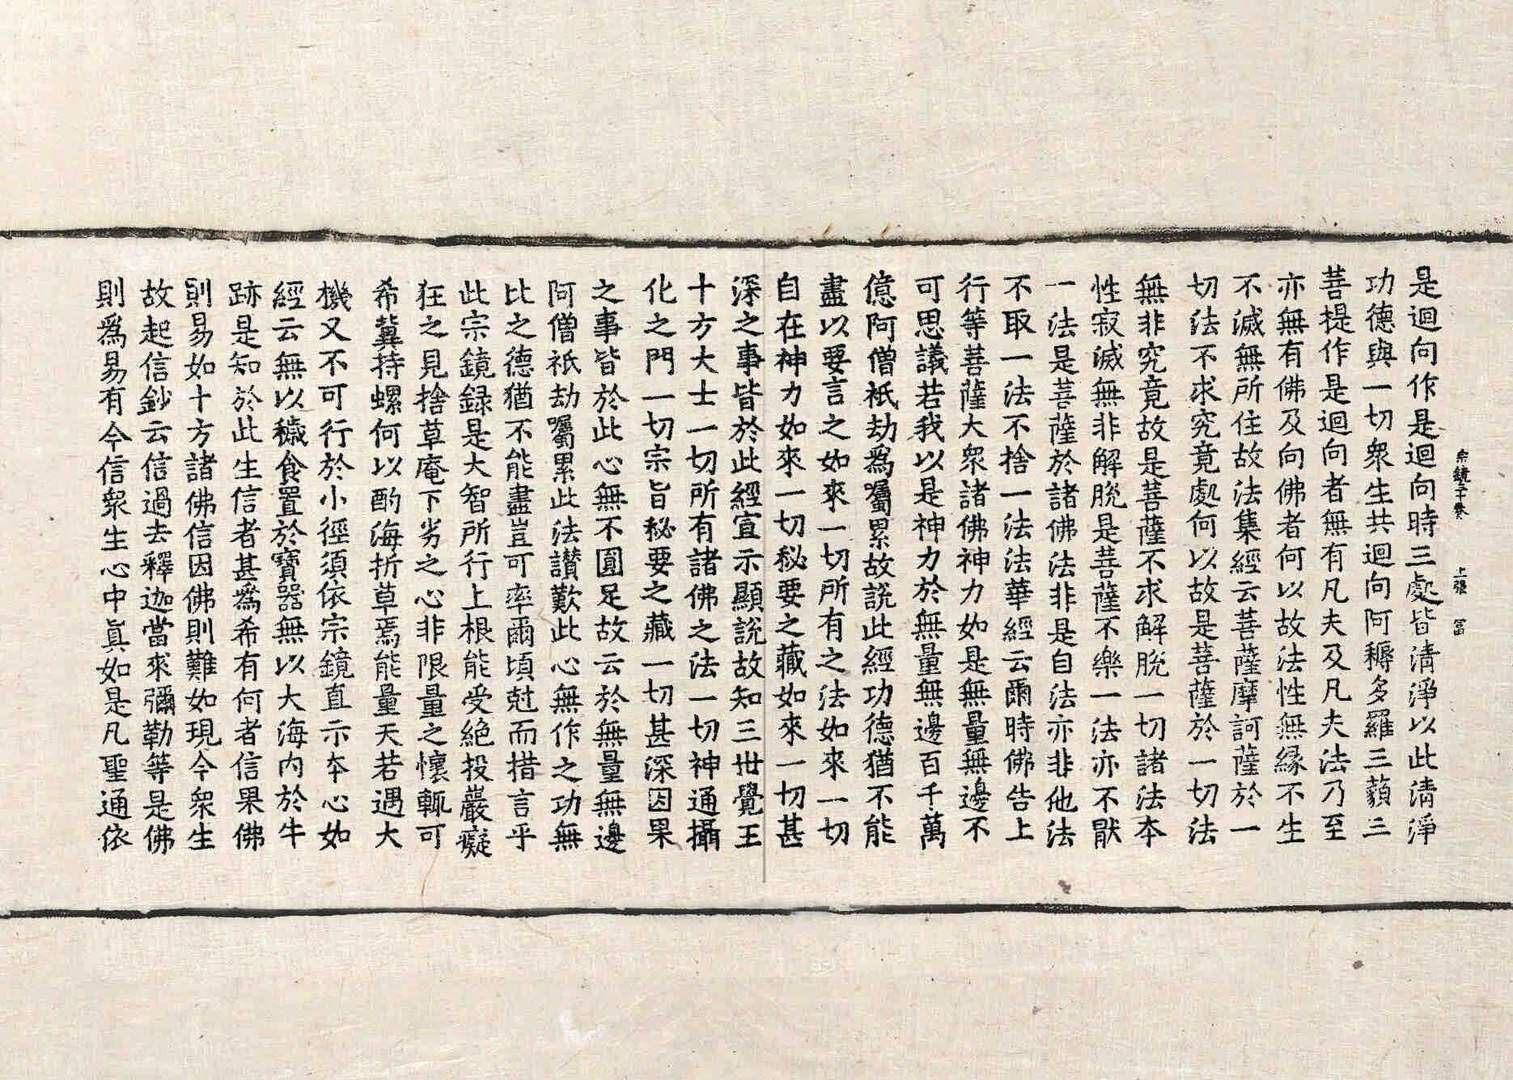 是迴向作是迴向時三處皆清淨以此清淨
功德與一切衆生共迴向阿耨多羅三藐三
菩提作是迴向者無有凡夫及凡夫法乃至
亦無有佛及向佛者何以故法性無緣不生
不滅無所住故法集經云菩薩摩訶薩於一
切法不求究竟處何以故是菩薩於一切法
無非究竟故是菩薩不求解脫一切諸法本
性寂滅無非解脫是菩薩不樂一法亦不猒
一法是菩薩於諸佛法非是自法亦非他法
不取一法不捨一法法華經云爾時佛告上
行等菩薩大衆諸佛神力如是無量無邊不
可思議若我以是神力於無量無邊百千萬
億阿僧祇劫爲囑累故說此經功德猶不能
盡以要言之如來一切所有之法如來一切
自在神力如來一切秘要之藏如來一切甚
深之事皆於此經宣示顯說故知三世覺王
十方大士一切所有諸佛之法一切神通攝
化之門一切宗旨秘要之藏一切甚深因果
之事皆於此心無不圓足故云於無量無邊
阿僧祇劫囑累此法讃歎此心無作之功無
比之德猶不能盡豈可率爾頃尅而措言乎
此宗鏡録是大智所行上根能受絶投巖癡
狂之見捨草庵下劣之心非限量之懷輒可
希冀持螺何以酌海折草焉能量天若遇大
機又不可行於小徑須依宗鏡直示本心如
經云無以穢食置於寶器無以大海內於牛
跡是知於此生信者甚爲希有何者信果佛
則易如十方諸佛信因佛則難如現今衆生
故起信鈔云信過去釋迦當來彌勒等是佛
則爲易有今信衆生心中眞如是凡聖通依